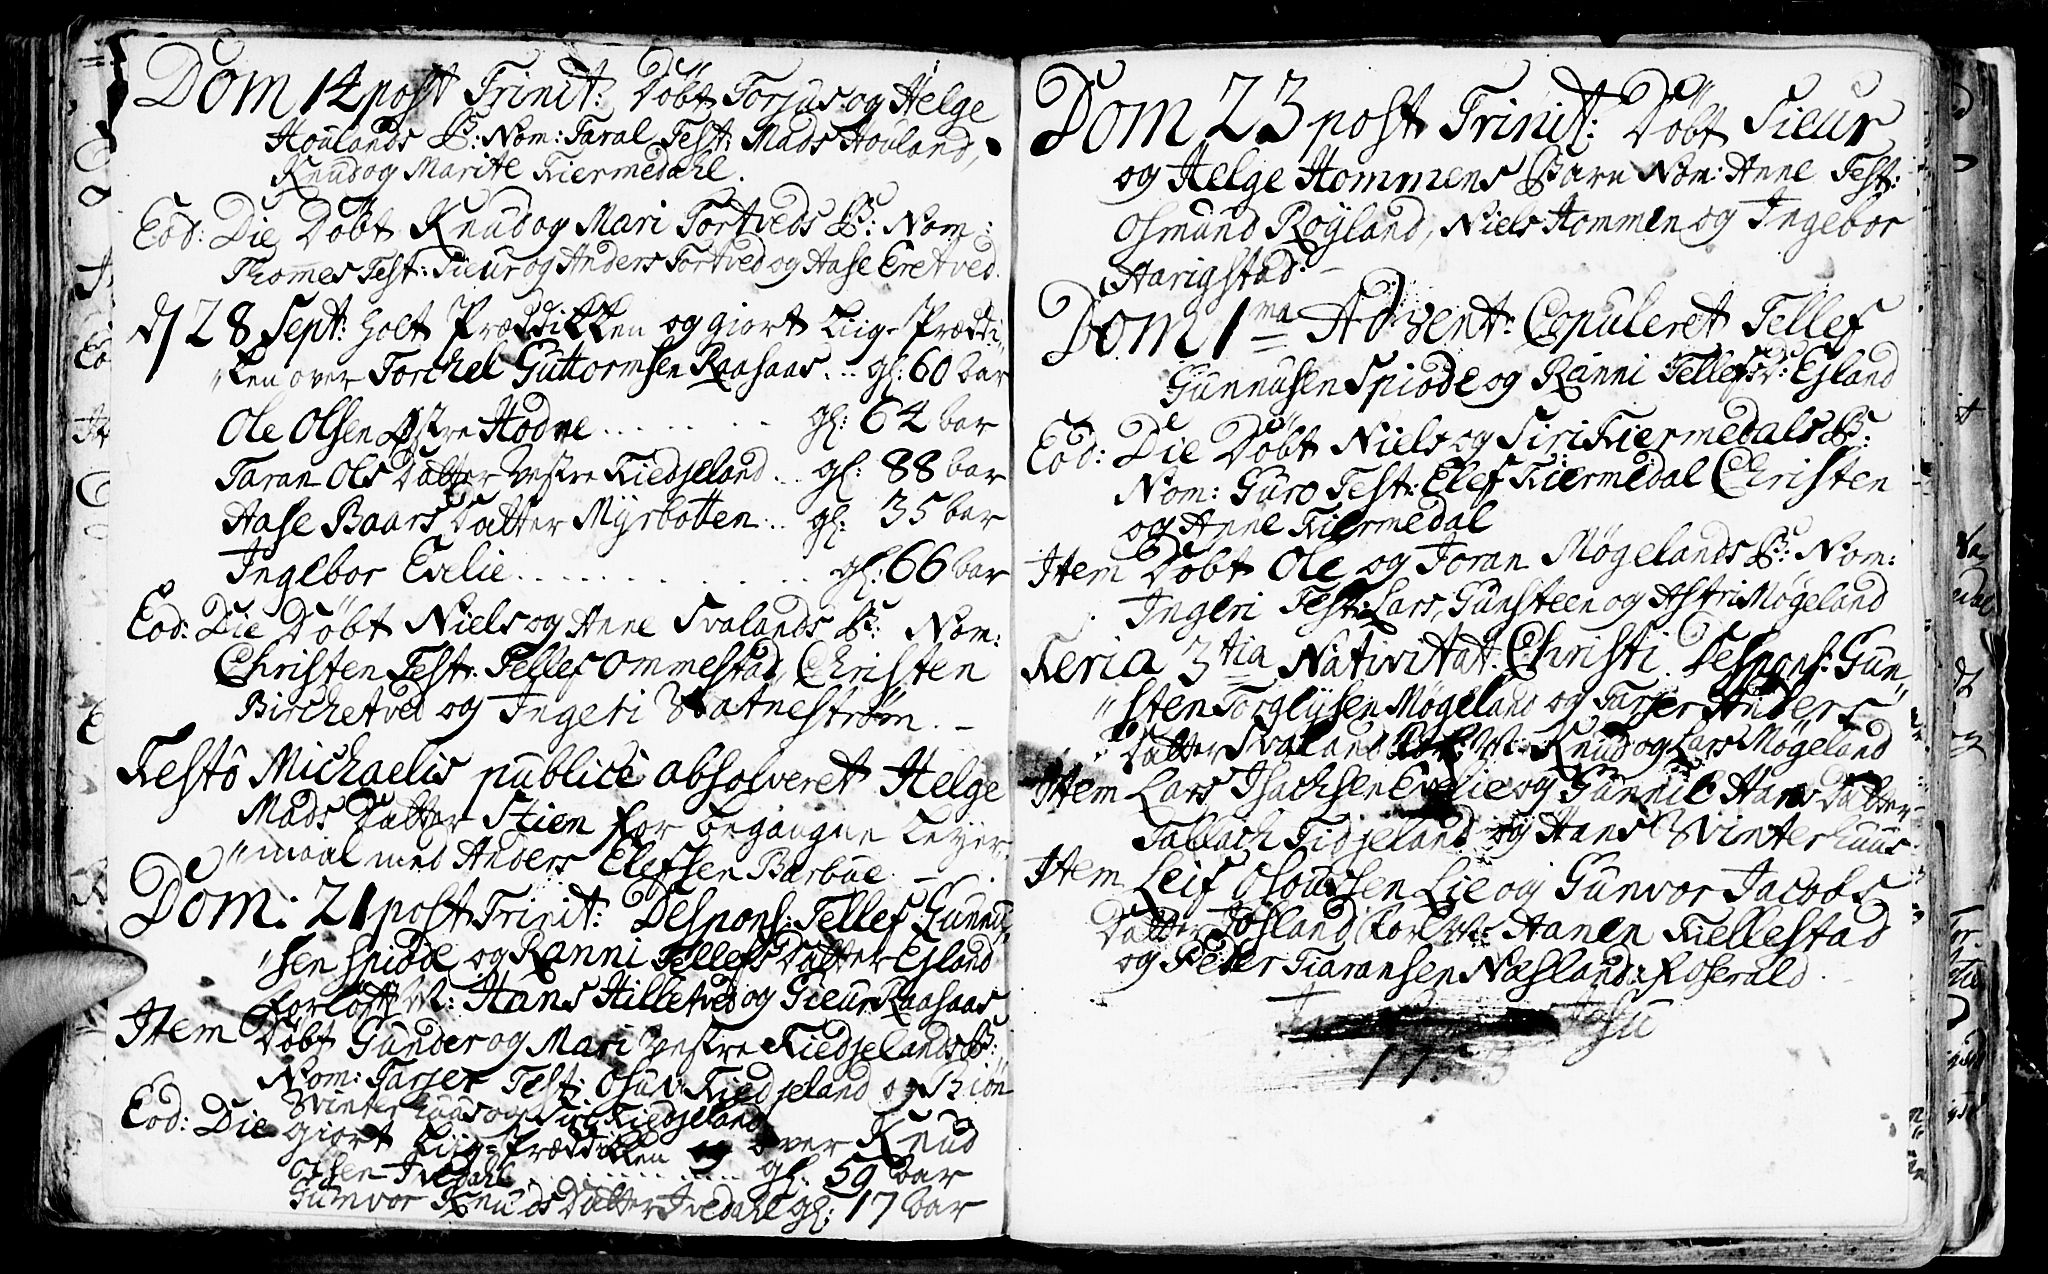 Dom 14 post Trinit: Döbt Torjus og Helge
Houlands B: Nom: Taral Test: Mads Houland,
Knud og Marite Kiermedahl.
Eod: Die Döbt Knud og Mari Tortveds B: Nom:
Thomes Test: Sieur og Anders Tortved og Aase Eretved.
d 28 Sept: holt Prædikken og giort Liig-Prædi„
„ken over Torchel Guttormsen Raasaas... gl: 60 bar
Ole Olsen Østre Hodne ........ gl: 64 bar
Taran Ols Datter Vestre Kiedjeland .. gl: 88 bar
Aase Baars Datter Myrbotten .. gl: 35 bar
Ingebor Evelie ............ gl: 66 bar
Eod: Die Döbt Niels og Anne Svalands B: Nom:
Christen Test: Tellef Ommestad, Christen
Birchetved og Ingeri Vatneström. –
Festô Michaelis publicè absolveret Helge
Mads Datter Stien for begangne Leyer„
„maal med Anders Elefsen Barbue. –
Dom: 21 post Trinit: Despons: Tellef Gunnu„
„sen Spiöde og Ranni Tellefs Datter Ejland
Forlöft M: Hans Hilletved og Sieur Raasaas
Item Döbt Gunder og Mari Vestre Kiedjelands B:
Nom: Tarjer Test: Osuv Kiedjeland og Biön
Vinterhuus og Siri Kiedjeland
Eod: Die giort Liig-Prædikken over Knud
Olsen Ivedahl ........ gl: 59 bar
Gunvor Knuds Datter Ivedahl gl: 17 bar
Dom 23 post Trinit: Döbt Sieur
og Helge Hommens Barn Nom: Anne Test:
Osmund Röyland, Niels Hommen og Ingebor
Harigstad. –
Dom 1ma Advent: Copuleret Tellef
Gunnusen Spiöde og Ranni Tellefs D: Ejland
Eod: Die Döbt Niels og Siri Kiermedals B:
Nom: Guro Test: Elef Kiermedal Christen
og Anne Kiermedal
Item Döbt Ole og Joran Mögelands B: Nom:
Ingeri Test: Lars, Gunsteen og Astri Mögeland
Feria 3tia Nativitat: Christi. Despons: Gun„
„sten Torgiusen Mögeland og Tarjer Anders
Datter Svaland M: Knud og Lars Mögeland
Item Lars Isachsen Evelie og Gunnil Hans Datter
Tallach Kidjeland og Hans Vinterhuus
Item Leif Osoufsen Lie og Gunvor Jacobs
Datter Fösland Forl: M: Hanen Kiellestad
og Peder Tiaransen Næsland: Roserald.